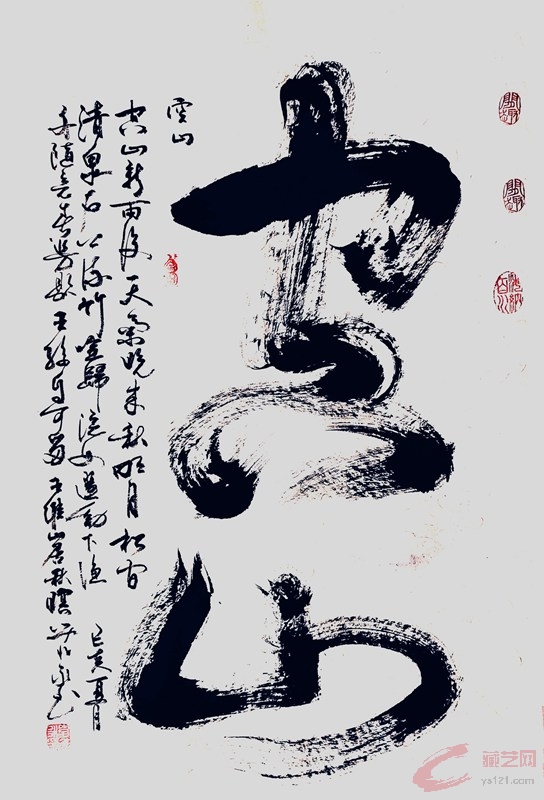 空山
空山
空山新雨後天氣晚来秋明月松間
清泉石上流竹喧歸浣女蓮動下漁
舟隨意春芳歇王孫自可留王維山居秋暝
己亥夏月
藏艺网
ys121.com